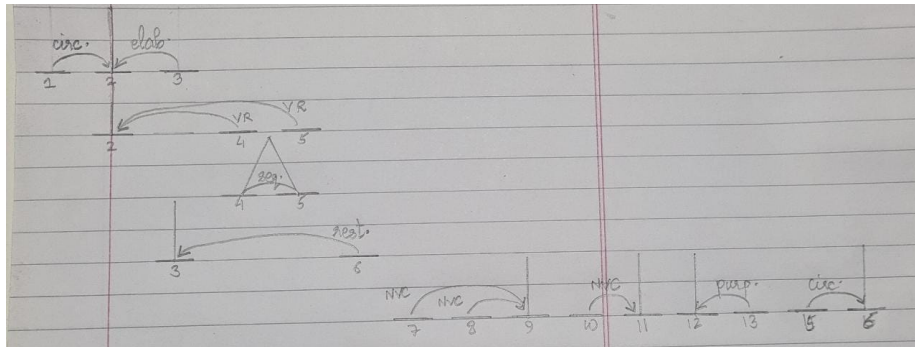 circ. elab.
1 2 3
VR
VR
2 4 5
seq.
4 5
rest.
3 6
NVC NVC NVC purp. circ.
7 8 9 10 11 12 13 15 16